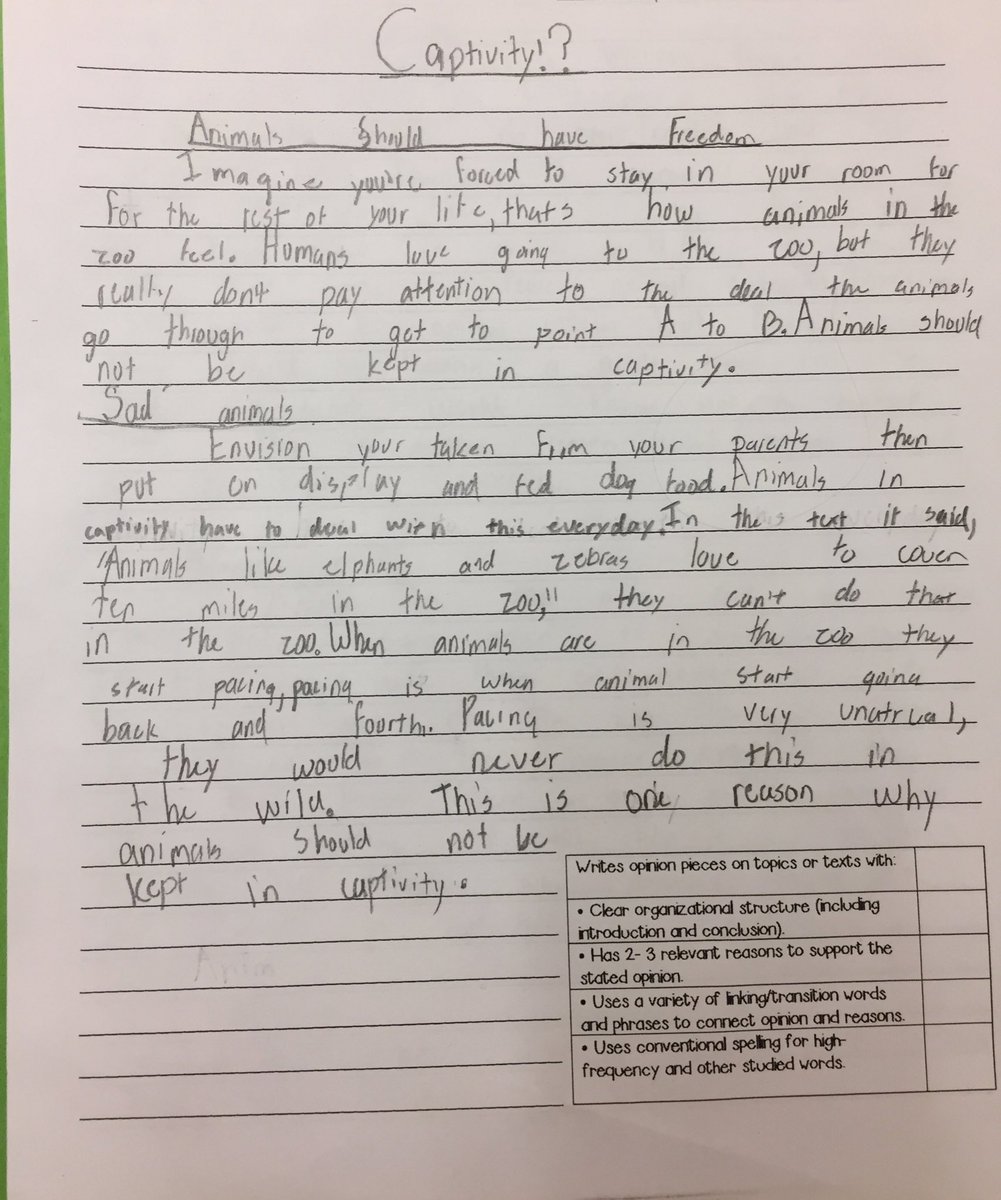 Captivity!?
Animals Should have Freedom
Imagine you're forced to stay in your room for
for the rest of your life, thats how animals in the
zoo feel. Humans love going to the zoo, but they
really don't pay attention to the deal the animals
go through to get to point A to B. Animals should
not be kept in captivity.
Sad animals
Envision your taken from your parents then
put on display and fed dog food. Animals in
captivity have to deal with this everyday. In the text it said,
"Animals like elphants and zebras love to cover
ten miles in the zoo," they can't do that
in the zoo. When animals are in the zoo they
start pacing, pacing is when animal start going
back and fourth. Pacing is very unatrual,
they would never do this in
the wild. This is one reason why
animals should not be
kept in captivity.
Writes opinion pieces on topics or texts with:
• Clear organizational structure (including
introduction and conclusion).
• Has 2- 3 relevant reasons to support the
stated opinion.
• Uses a variety of linking/transition words
and phrases to connect opinion and reasons.
• Uses conventional spelling for high-
frequency and other studied words.